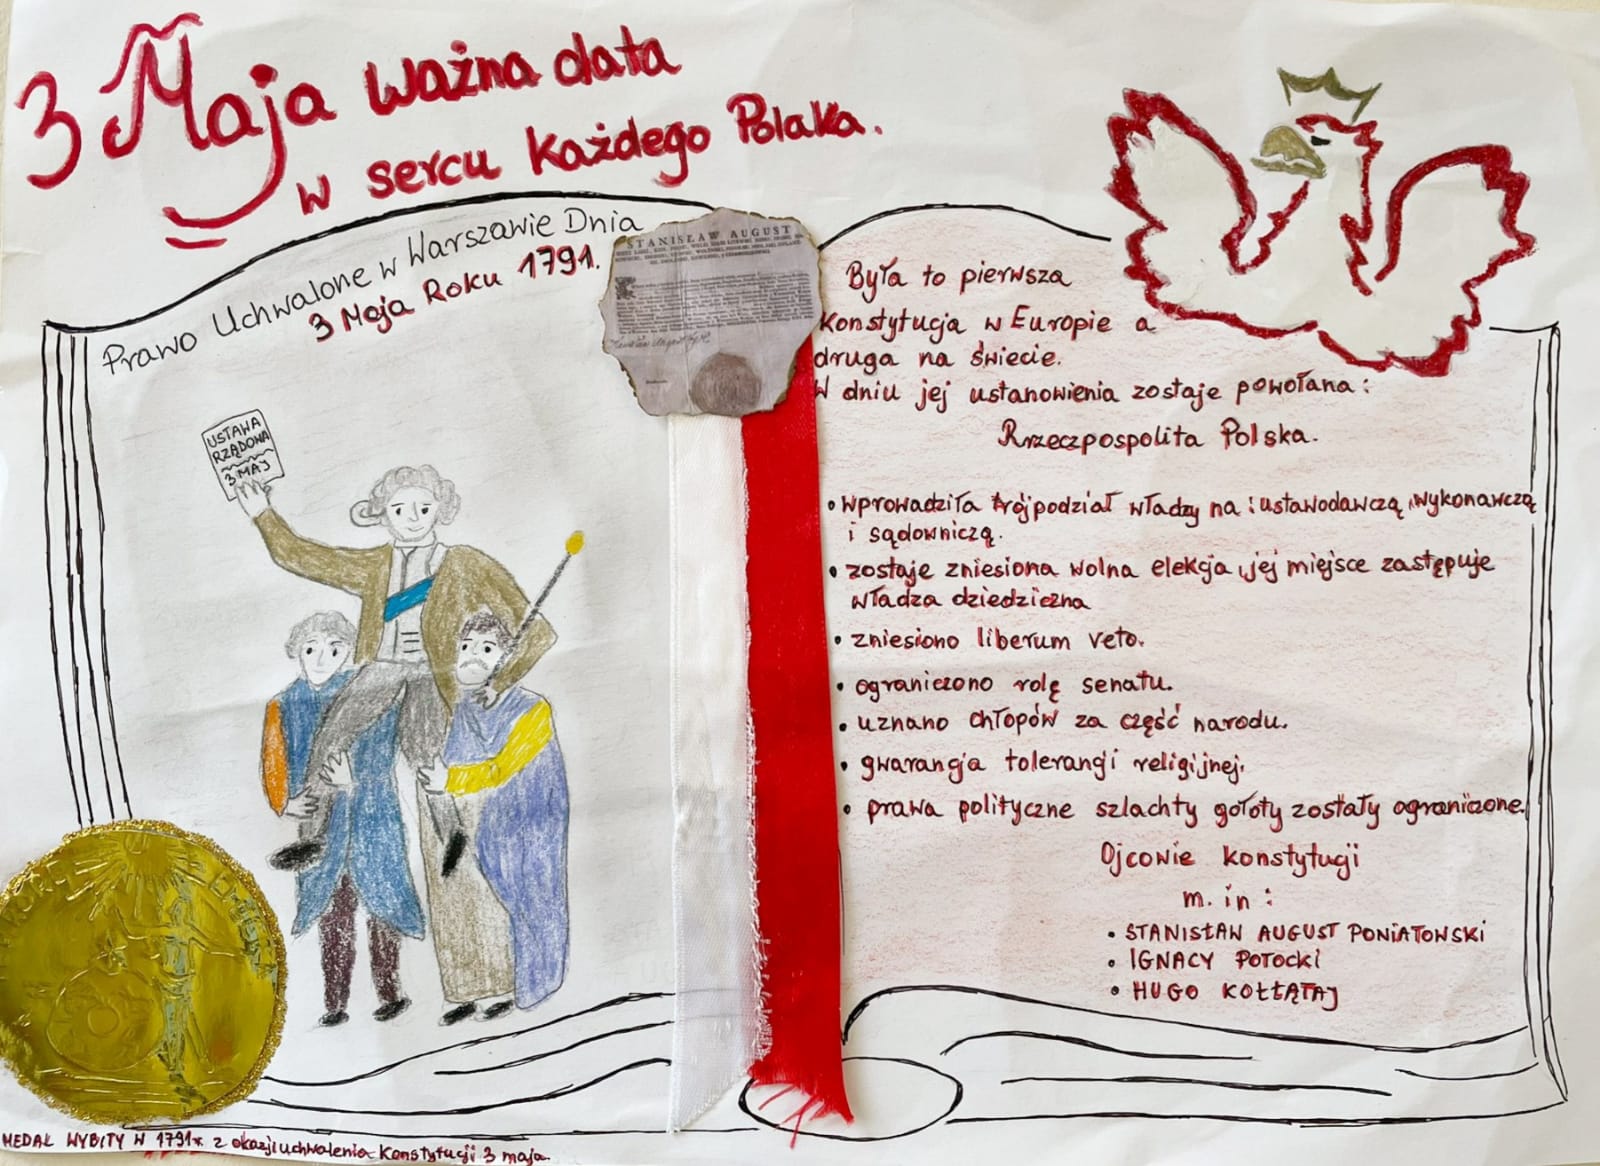 3 Maja ważna data
w sercu każdego Polaka.
Prawo Uchwalone w Warszawie Dnia
3 Maja Roku 1791.
STANISŁAW AUGUST
USTAWA
RZĄDOWA
3 MAJ
Była to pierwsza
Konstytucja w Europie a
druga na świecie.
W dniu jej ustanowienia zostaje powołana:
Rrzeczpospolita Polska.
• wprowadziła trójpodział władzy na: ustawodawczą, wykonawczą
i sądowniczą.
• zostaje zniesiona wolna elekcja, jej miejsce zastępuje
władza dziedziczna
• zniesiono liberum veto.
• ograniczono rolę senatu.
• uznano chłopów za część narodu.
• gwarancja tolerancji religijnej.
• prawa polityczne szlachty gołoty zostały ograniczone.
Ojcowie konstytucji
m. in:
• STANISŁAW AUGUST PONIATOWSKI
• IGNACY POTOCKI
• HUGO KOŁŁĄTAJ
MEDAL WYBITY W 1791r. z okazji uchwalenia Konstytucji 3 maja.